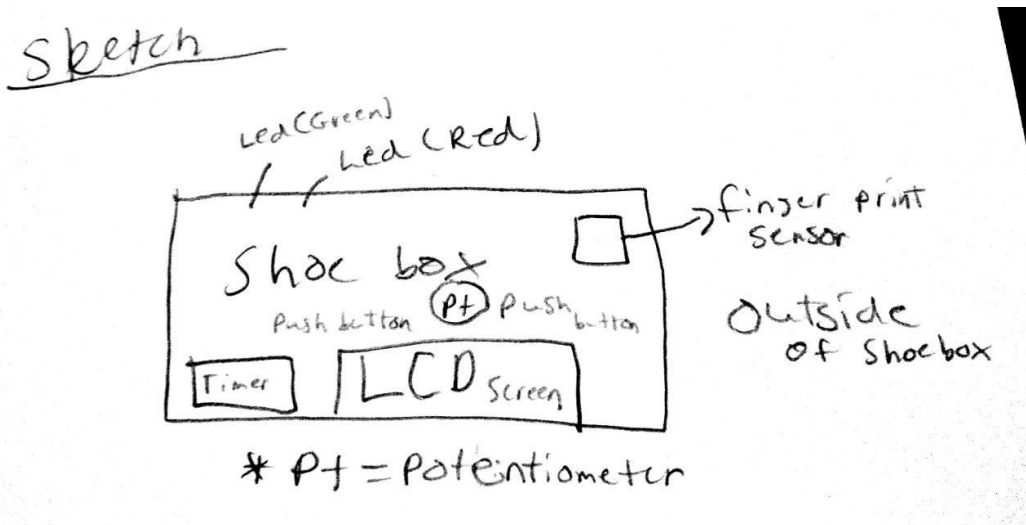 Sketch
Led (Green)
Led (Red)
finger print
sensor
Shoe box
Push button
Pt
Push
button
Outside
of Shoebox
Timer
LCD Screen
* Pt = Potentiometer